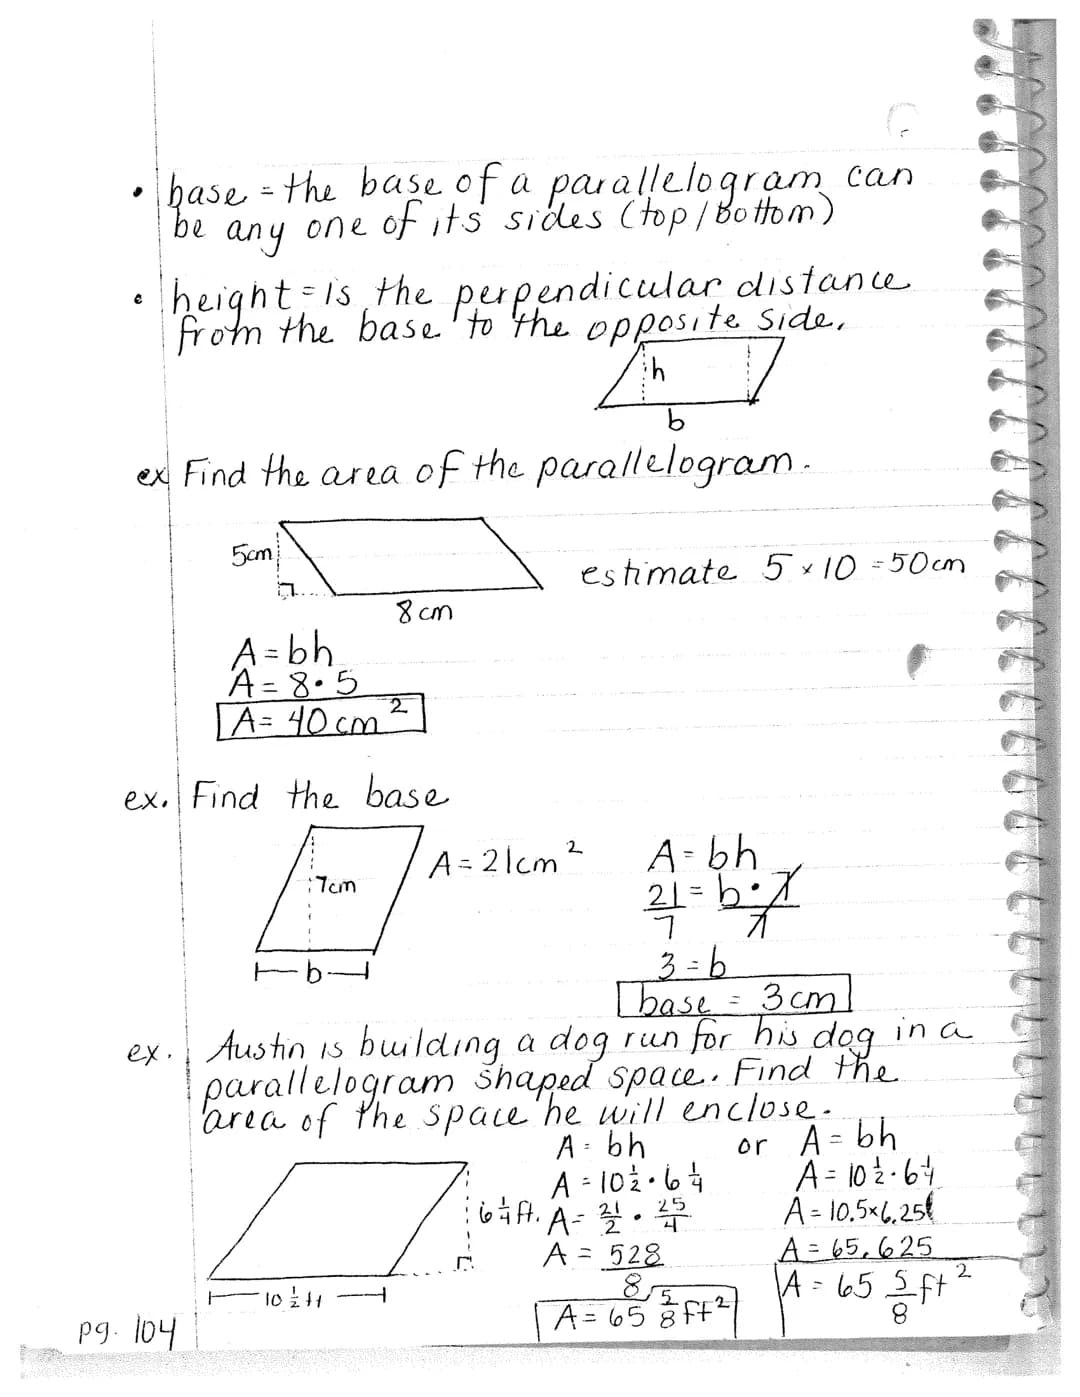 • base = the base of a parallelogram can
be any one of its sides (top/bottom)
• height = is the perpendicular distance
from the base to the opposite side.
h
b
ex Find the area of the parallelogram.
5cm
estimate 5 × 10 = 50cm
8cm
A = bh
A = 8 • 5
A = 40cm²
ex. Find the base
A = 21cm²
A = bh
7cm
21 = b • 7
7 7
3 = b
b
base = 3cm
ex. Austin is building a dog run for his dog in a
parallelogram shaped space. Find the
area of the space he will enclose.
A = bh or A = bh
A = 10 1/2 • 6 1/4 A = 10 1/2 • 6 1/4
6 1/4 ft. A = 21/2 • 25/4 A = 10.5 × 6.25
A = 528/8 A = 65.625
10 1/2 ft
A = 65 5/8 ft² A = 65 5/8 ft²
pg. 104